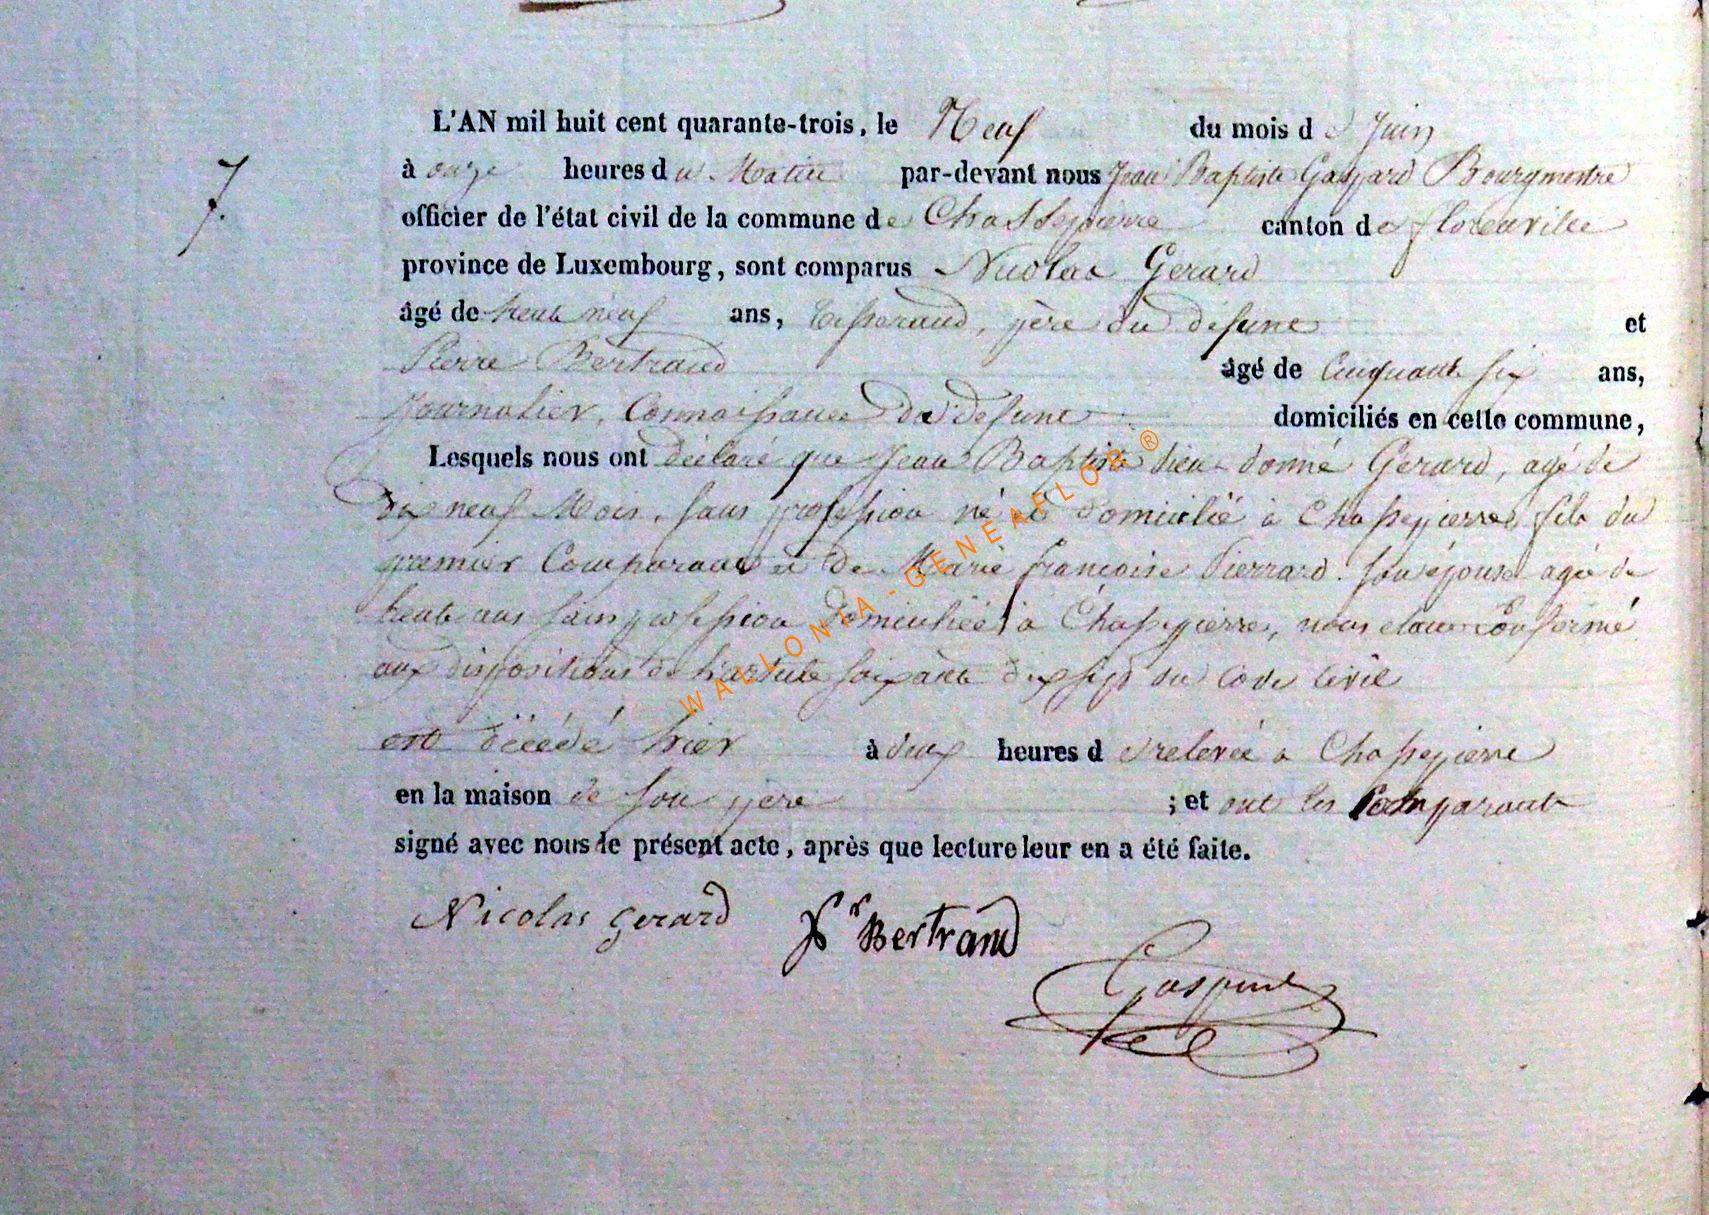 L'AN mil huit cent quarante-trois, le Neuf du mois de Juin
7.
à onze heures du Matin par-devant nous Jean Baptiste Gaspard Bourgmestre
officier de l'état civil de la commune de Chassepierre canton de florenville
province de Luxembourg, sont comparus Nicolas Gerard
âgé de trente neuf ans, tisserand, père du défunt et
Pierre Bertrand âgé de Cinquante six ans,
Journalier, Connaissance du défunt domiciliés en cette commune,
Lesquels nous ont déclaré que Jean Baptiste dieu-donné Gerard, agé de
dix neuf Mois, sans profession né et domicilié à Chassepierre, fils du
premier Comparant et de Marie françoise Pierrard son épouse agée de
trente ans sans profession domiciliée à Chassepierre, nous étant conformé
aux dispositions de l'article soixante dix sept du code civil
est décédé hier à deux heures de relevée à Chassepierre
en la maison de son père ; et ont les Comparants
signé avec nous le présent acte, après que lecture leur en a été faite.
Nicolas Gerard Pr Bertrand
Gaspard
WALLONIA-GENEAFLOR®